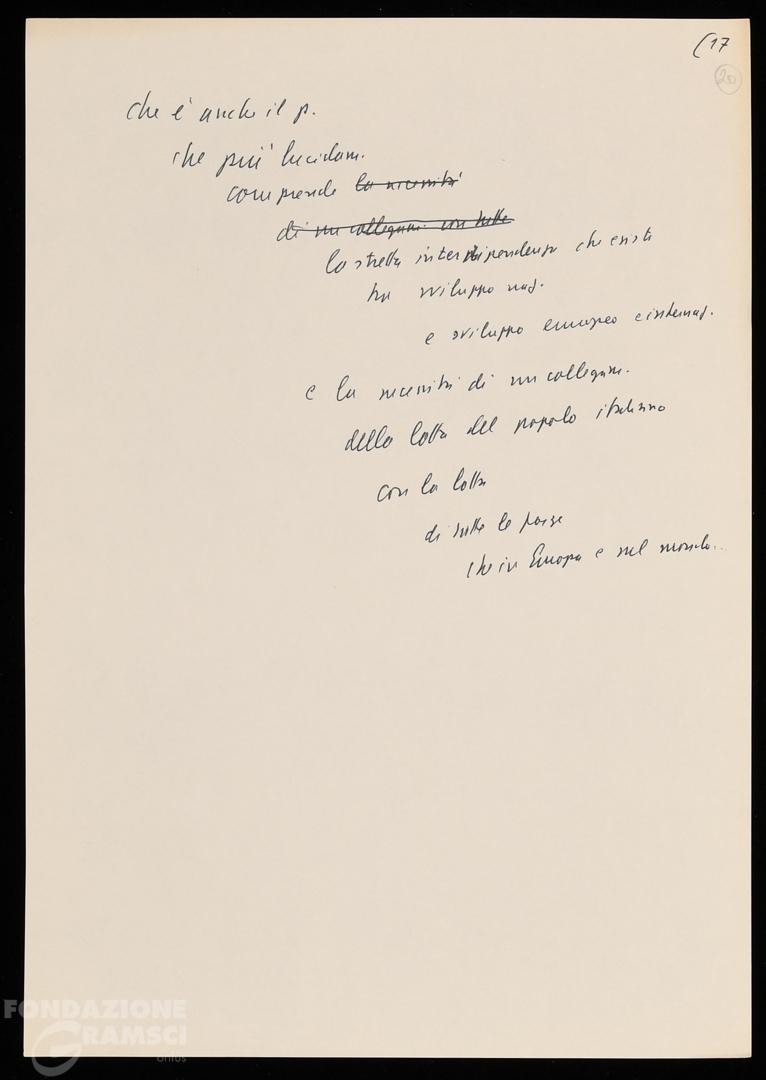 (17
20
che è anche il p.
che più lucidam.
comprende la necessità
di un collegam. con tutte
la stretta interdipendenza che esiste
tra sviluppo naz.
e sviluppo europeo e internaz.
e la necessità di un collegam.
della lotta del popolo italiano
con la lotta
di tutte le forze
che in Europa e nel mondo..
FONDAZIONE
GRAMSCI
onlus